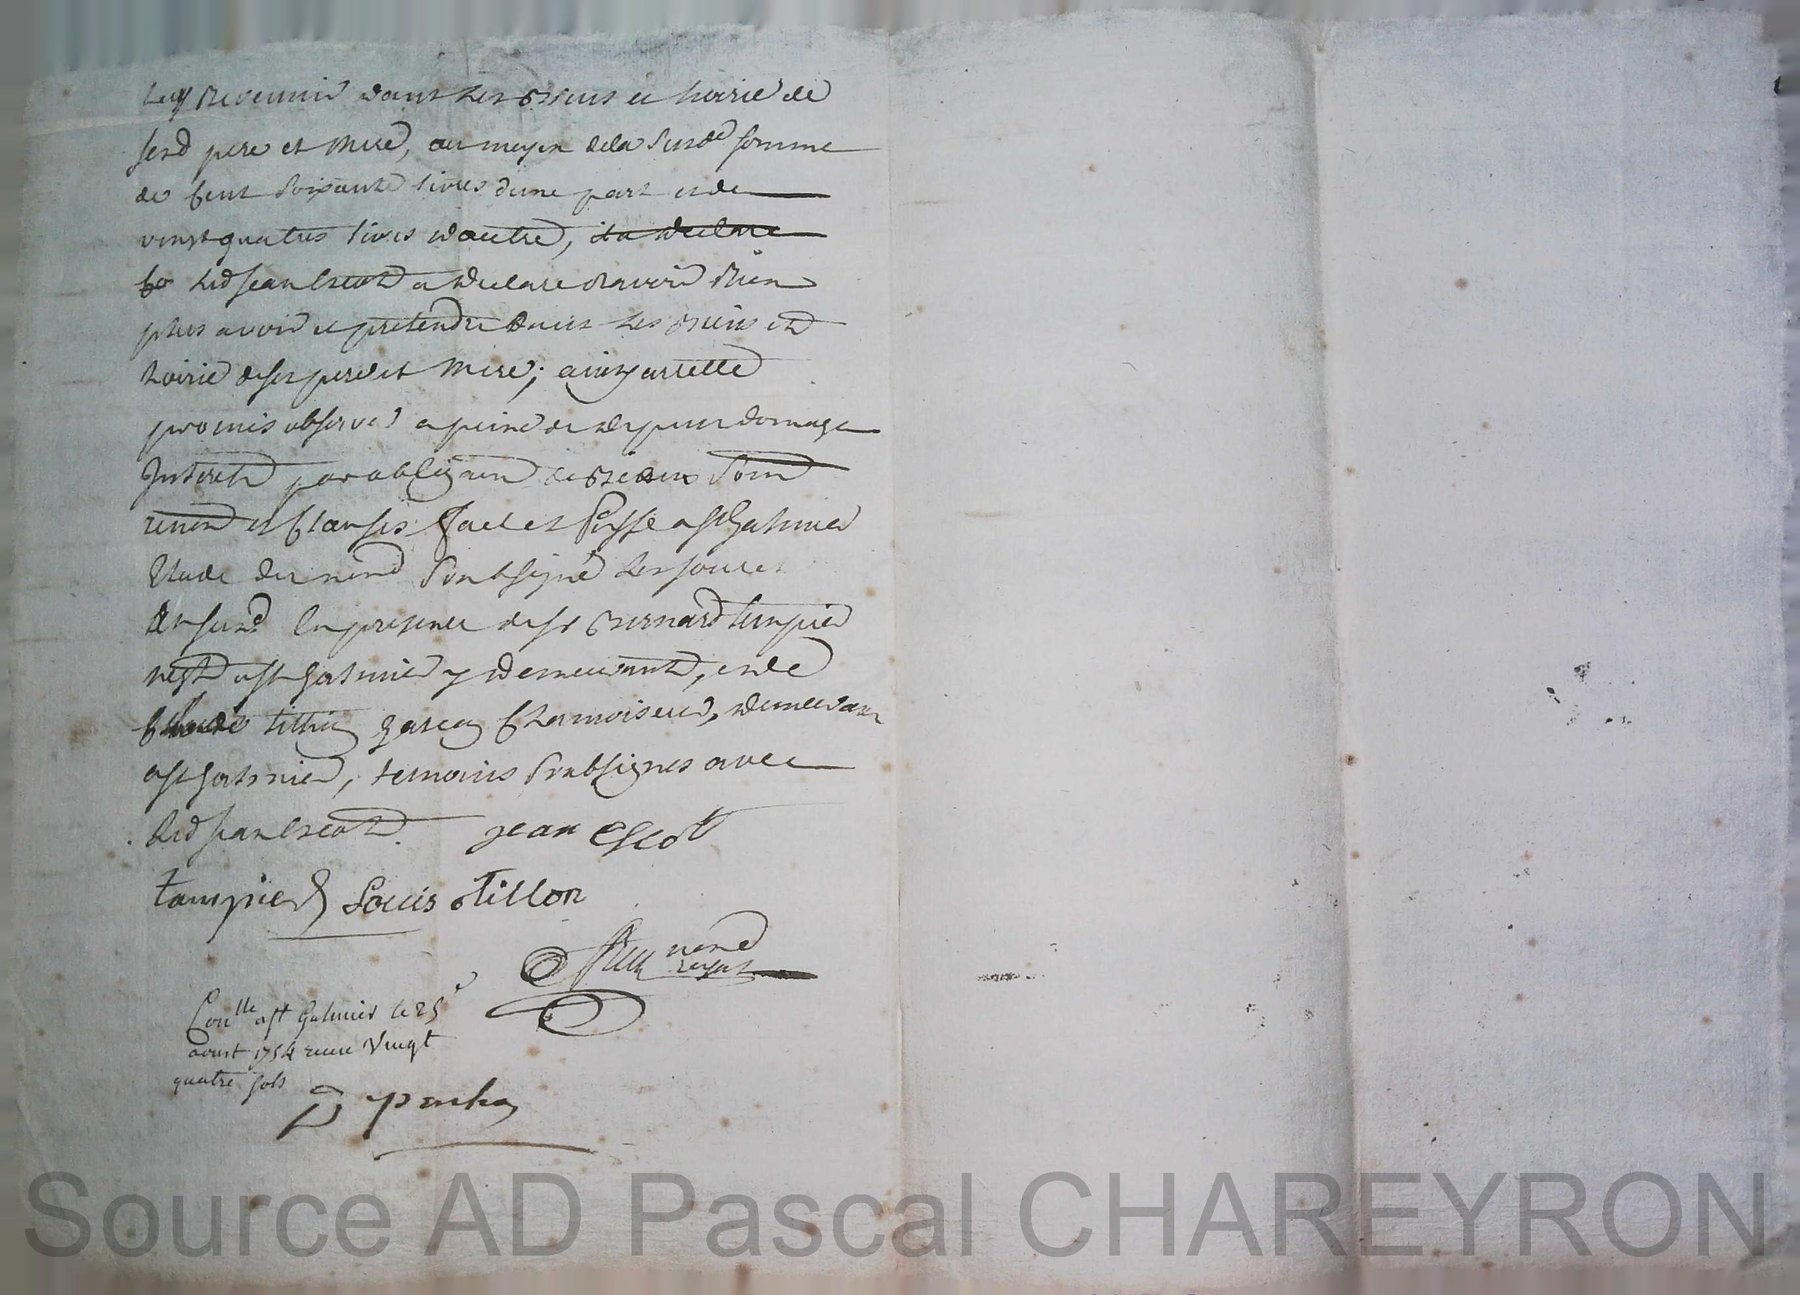 luy revenir dans les biens et hoirie de
sesd pere et mere, au moyen de la susde somme
de cent soixante livres d'une part et de
vingt quatres livres d'autre, et a declare
led jean escot a declare n'avoir rien
plus avoir et pretendre dans les biens et
hoirie de ses pere et mere; ainsy
promis observer a peine de depens domage
interets par obligaon de biens soum
renon et clauses fait et passé a st galmier
etude du nore soubsigné les jour et
an susd en presence de sr bernard
negt a st galmier y demeurant, et de
garçon chamoiseur, demeurant
a st galmier, temoins soubsignes avec
led jean escot jean escot
tampier Louis tillon
nore
royal
Conlle a st Galmier le 25
aoust 1754 receu vingt
quatre sols
Source AD Pascal CHAREYRON